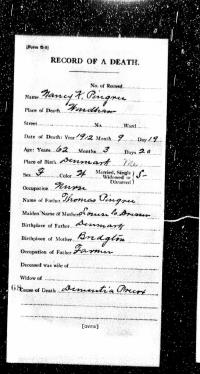 [Form B-4]
RECORD OF A DEATH.
No. of Record
Name Nancy K. Pingree
Place of Death, Windham
Street No. Ward
Date of Death: Year 1912 Month 9 Day 19
Age: Years 62 Months 3 Days 20
Place of Birth, Denmark Me
Sex F Color W Married, Single Widowed or Divorced S-
Occupation Nurse
Name of Father Thomas Pingree
Maiden Name of Mother
Birthplace of Father, Denmark
Birthplace of Mother, Bridgton
Occupation of Father Farmer
Deceased was wife of
Widow of
Cause of Death, Dementia Precox
[OVER]